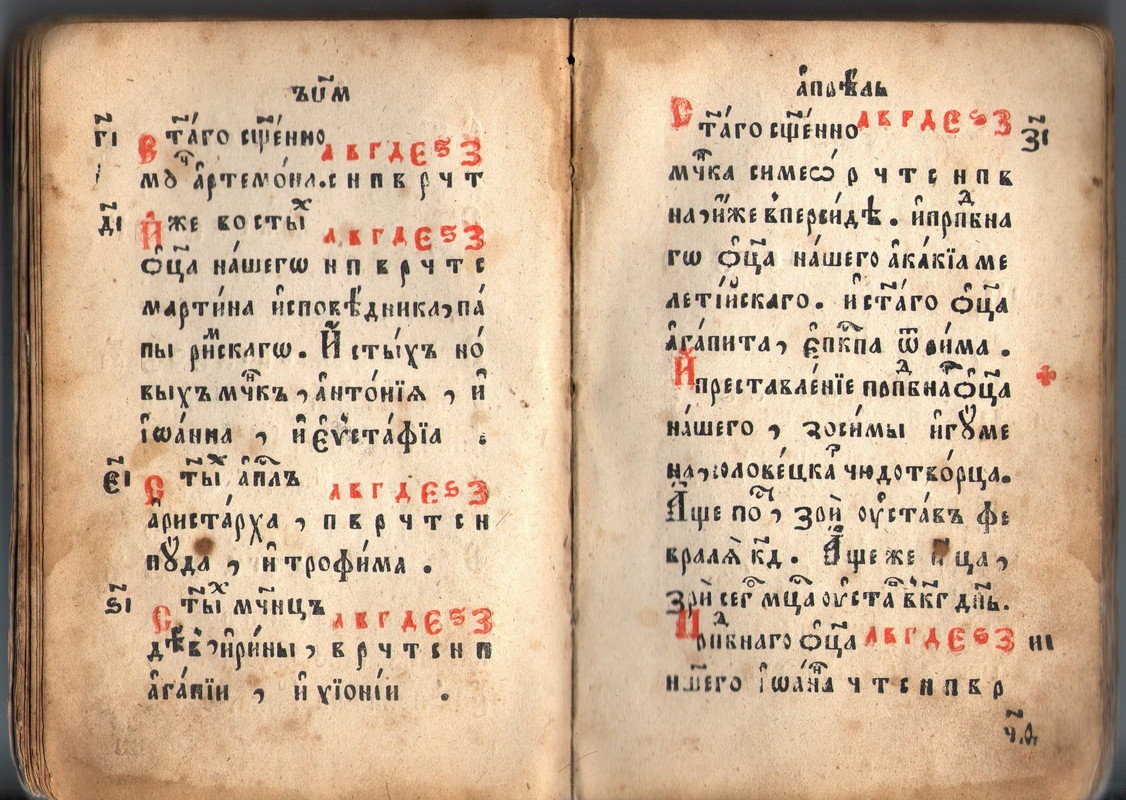 мц҃ъ
г҃і С т҃а́го сщ҃е́нно А В Г Д Є Ѕ З
мꙋ҃ч а҆ртемо́на. с н п в р ч т
д҃і И҆́же во ст҃ыⷯ А В Г Д Є Ѕ З
ѻ҆ц҃а на́шегѡ н п в р ч т с
марти́на и҆сповѣ́дника, па́
пы ри́мⷭскагѡ. И҆ ст҃ы́хъ но́
выхъ мч҃нкъ, а҆нто́нїѧ, и҆
і҆ѡа́нна, и҆ є҆ѵста́фїа :
є҃і С т҃ыⷯ а҆п҃лъ А В Г Д Є Ѕ З
а҆риста́рха, п в р ч т с н
пꙋ́да, и҆ трофи́ма.
ѕ҃і С т҃ыⷯ мч҃нцъ А В Г Д Є Ѕ З
дѣ́въ, и҆ри́ны, в р ч т с н п
а҆га́пїи, и҆ хїоні́и.
а҆прѣ́ль
С т҃а́го сщ҃е́нно А В Г Д Є Ѕ З з҃і
мч҃нка симеѡ р ч т с н п в
на, и҆́же в̾перси́дѣ. и҆ прⷣпбна
гѡ ѻ҆ц҃а на́шего а҆ка́кїа ме
леті́йскаго. и҆ ст҃а́го ѻ҆ц҃а
а҆га́пита, є҆пⷭкпа ѿ ри́ма.
И҆ преставле́нїе прⷣпбна ѻ҆ц҃а
на́шего, зоси́мы и҆гꙋ́ме
на, солове́цкаⷢ чюдотво́рца.
А҆́ще поⷭ҇, зрѝ ѹ҆ста́въ фе
враля̀ к҃д. А҆́ще же н҃ ца,
зрѝ сегⷪ мц҃а ѹ҆ста́ⷡ в̾ к҃г дн҃ь.
П рⷣпбнаго ѻ҆ц҃а А В Г Д Є Ѕ З и҃і
н҃шего і҆ѡа́нⷩа ч т с н п в р
ч҃ѳ.